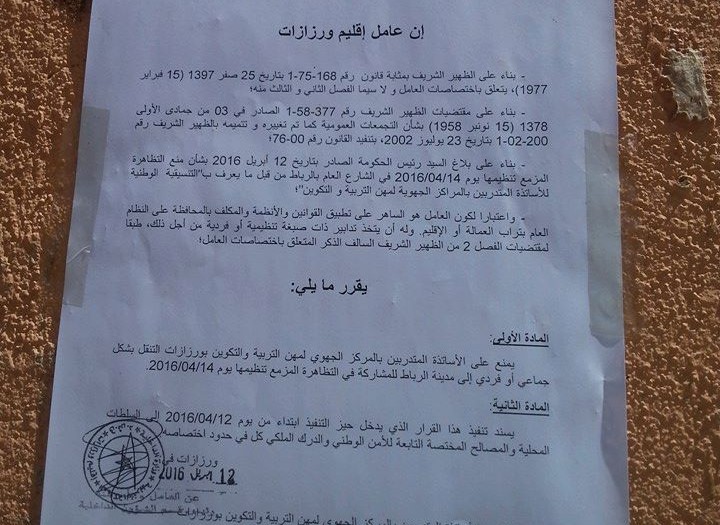 إن عامل إقليم ورزازات
- بناء على الظهير الشريف بمثابة قانون رقم 168-75-1 بتاريخ 25 صفر 1397 (15 فبراير
1977)، يتعلق باختصاصات العامل و لا سيما الفصل الثاني و الثالث منه؛
- بناء على مقتضيات الظهير الشريف رقم 377-58-1 الصادر في 03 من جمادى الأولى
1378 (15 نونبر 1958) بشأن التجمعات العمومية كما تم تغييره و تتميمه بالظهير الشريف رقم
200-02-1 بتاريخ 23 يوليوز 2002، بتنفيذ القانون رقم 00-76؛
- بناء على بلاغ السيد رئيس الحكومة الصادر بتاريخ 12 أبريل 2016 بشأن منع التظاهرة
المزمع تنظيمها يوم 2016/04/14 في الشارع العام بالرباط من قبل ما يعرف ب"التنسيقية الوطنية
للأساتذة المتدربين بالمراكز الجهوية لمهن التربية و التكوين"؛
- واعتبارا لكون العامل هو الساهر على تطبيق القوانين والأنظمة والمكلف بالمحافظة على النظام
العام بتراب العمالة أو الإقليم. وله أن يتخذ تدابير ذات صبغة تنظيمية أو فردية من أجل ذلك، طبقا
لمقتضيات الفصل 2 من الظهير الشريف السالف الذكر المتعلق باختصاصات العامل؛
يقرر ما يلي:
المادة الأولى:
يمنع على الأساتذة المتدربين بالمركز الجهوي لمهن التربية والتكوين بورزازات التنقل بشكل
جماعي أو فردي إلى مدينة الرباط للمشاركة في التظاهرة المزمع تنظيمها يوم 2016/04/14.
المادة الثانية:
يسند تنفيذ هذا القرار الذي يدخل حيز التنفيذ ابتداء من يوم 2016/04/12 إلى السلطات
المحلية والمصالح المختصة التابعة للأمن الوطني والدرك الملكي كل في حدود اختصاصه
ورزازات في
12 أبريل 2016
عن العامل و
الداخلية
المركز الجهوي لمهن التربية والتكوين بورزازات